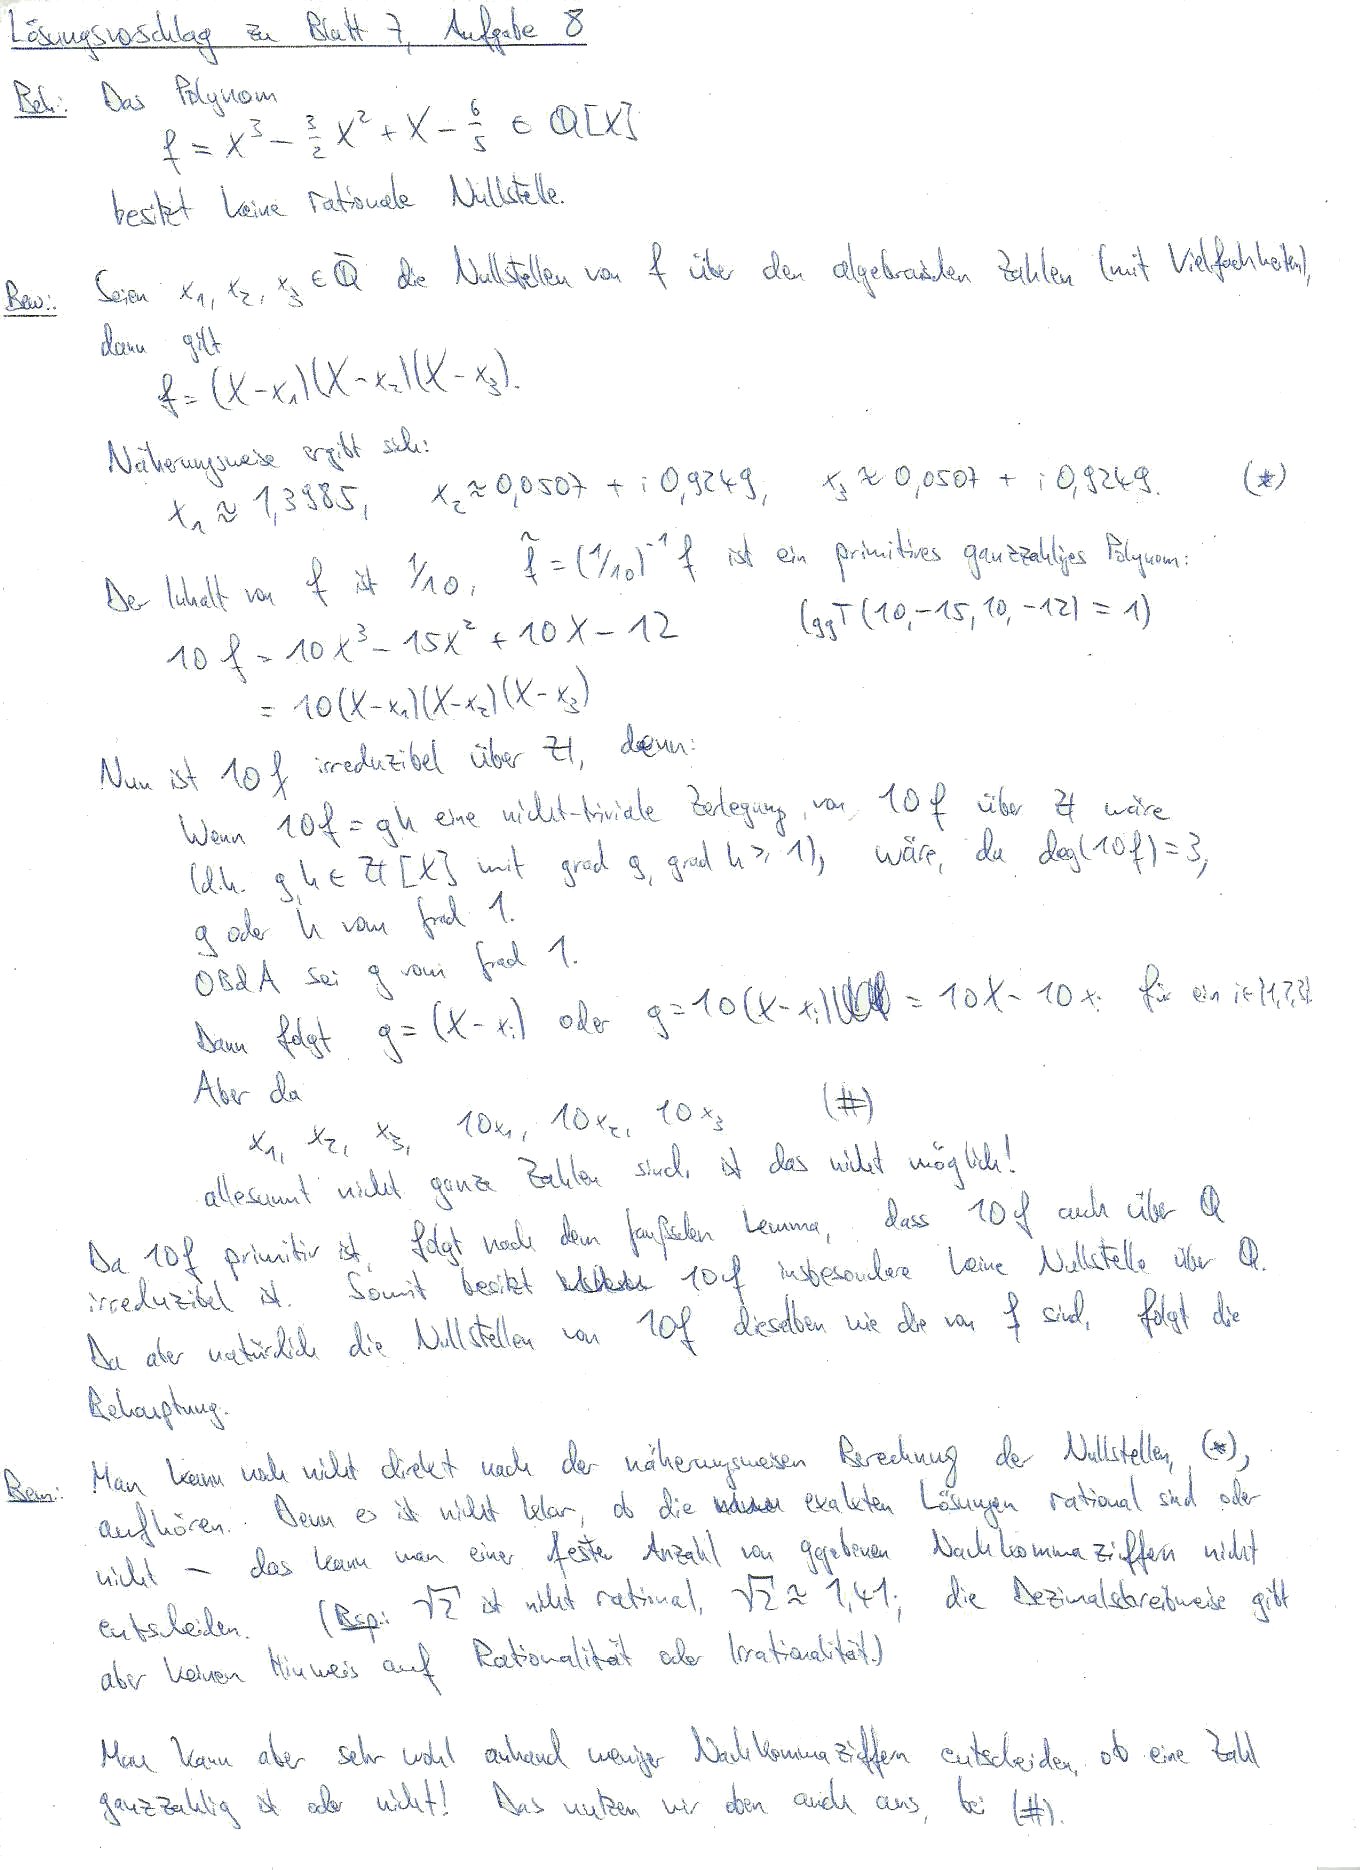 Lösungsvoschlag zu Blatt 7, Aufgabe 8
Beh.: Das Polynom
f = X³ - 3/2 X² + X - 6/5 ∈ ℚ[X]
besitzt keine rationale Nullstelle.
Bew.: Seien x₁, x₂, x₃ ∈ ℚ̄ die Nullstellen von f über den algebraischen Zahlen (mit Vielfachheiten),
dann gilt
f = (X-x₁)(X-x₂)(X-x₃).
Näherungsweise ergibt sich:
x₁ ≈ 1,3985, x₂ ≈ 0,0507 + i 0,9249, x₃ ≈ 0,0507 + i 0,9249. (*)
Der Inhalt von f ist 1/10, f̃ = (1/10)⁻¹ f ist ein primitives ganzzahliges Polynom:
10 f = 10X³ - 15X² + 10X - 12 (ggT(10,-15,10,-12) = 1)
= 10(X-x₁)(X-x₂)(X-x₃)
Nun ist 10f irreduzibel über ℤ, denn:
Wenn 10f = gh eine nicht-triviale Zerlegung von 10f über ℤ wäre
(d.h. g,h ∈ ℤ[X] mit grad g, grad h ≥ 1), wäre, da deg(10f) = 3,
g oder h vom Grad 1.
OBdA sei g vom Grad 1.
Dann folgt g = (X-xᵢ) oder g = 10(X-xᵢ) = 10X - 10xᵢ für ein i∈{1,2,3}.
Aber da
x₁, x₂, x₃, 10x₁, 10x₂, 10x₃ (#)
allesamt nicht ganze Zahlen sind, ist das nicht möglich!
Da 10f primitiv ist, folgt nach dem Gaußschen Lemma, dass 10f auch über ℚ
irreduzibel ist. Somit besitzt 10f insbesondere keine Nullstelle über ℚ.
Da aber natürlich die Nullstellen von 10f dieselben wie die von f sind, folgt die
Behauptung.
Bem.: Man kann noch nicht direkt nach der näherungsweisen Berechnung der Nullstellen, (*),
aufhören. Denn es ist nicht klar, ob die exakten Lösungen rational sind oder
nicht – das kann man einer festen Anzahl von gegebenen Nachkommaziffern nicht
entscheiden. (Bsp.: √2 ist nicht rational, √2 ≈ 1,41; die Dezimalschreibweise gibt
aber keinen Hinweis auf Rationalität oder Irrationalität.)
Man kann aber sehr wohl anhand weniger Nachkommaziffern entscheiden, ob eine Zahl
ganzzahlig ist oder nicht! Das nutzen wir oben auch aus, bei (#).